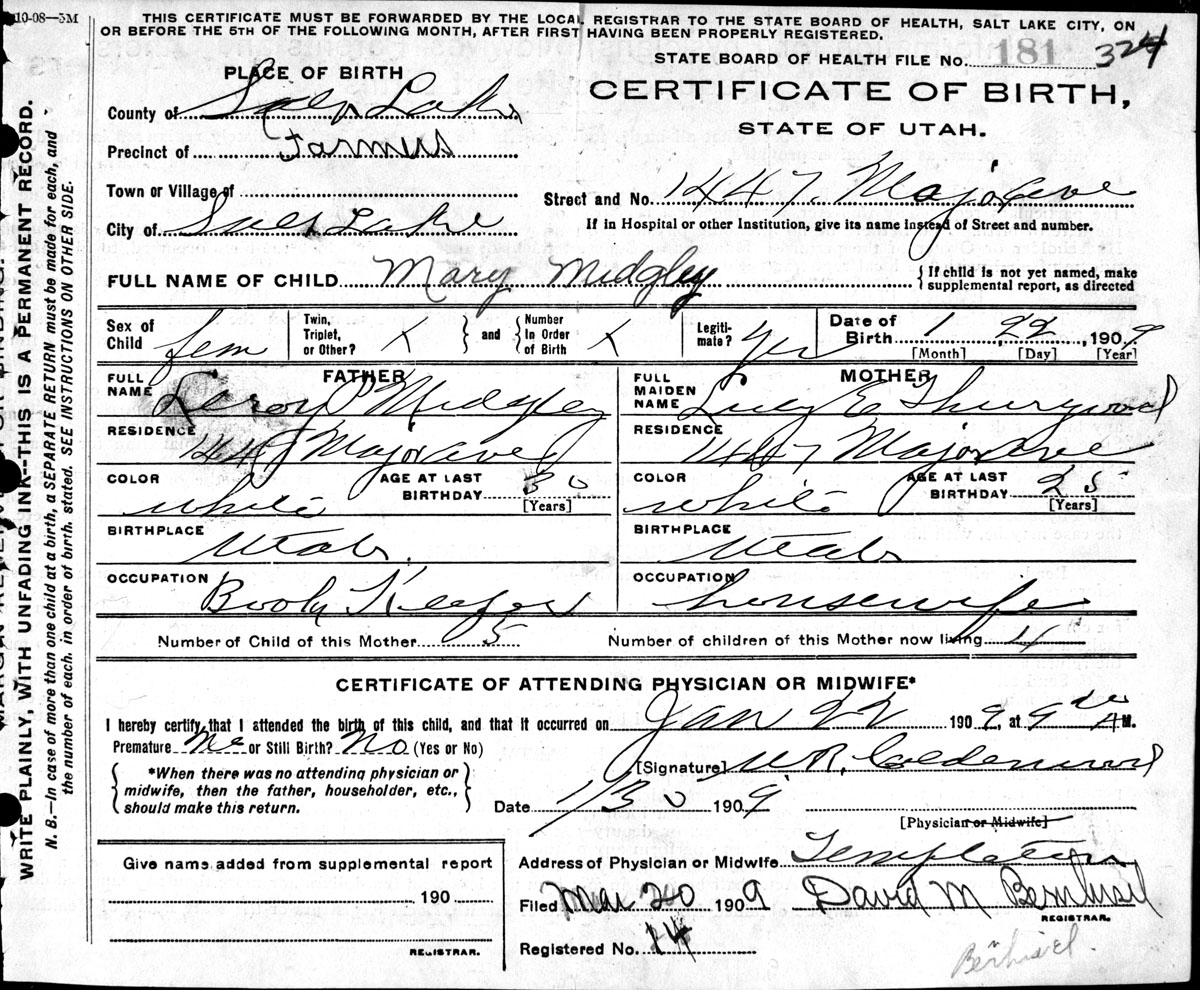 10-08—5M
THIS CERTIFICATE MUST BE FORWARDED BY THE LOCAL REGISTRAR TO THE STATE BOARD OF HEALTH, SALT LAKE CITY, ON
OR BEFORE THE 5TH OF THE FOLLOWING MONTH, AFTER FIRST HAVING BEEN PROPERLY REGISTERED.
STATE BOARD OF HEALTH FILE No. 181 324
PLACE OF BIRTH
CERTIFICATE OF BIRTH,
STATE OF UTAH.
County of Salt Lake
Precinct of Farmers
Town or Village of
Street and No. 1447 Major Ave
City of Salt Lake
If in Hospital or other Institution, give its name instead of Street and number.
FULL NAME OF CHILD Mary Midgley
{If child is not yet named, make supplemental report, as directed
Sex of Child fem
Twin, Triplet, or Other? X } and { Number In Order of Birth X
Legitimate? Yes
Date of Birth 1 22 1909
[Month] [Day] [Year]
FATHER
FULL NAME Leroy Midgley
RESIDENCE 1447 Major Ave
COLOR white
AGE AT LAST BIRTHDAY 30 [Years]
BIRTHPLACE Utah
OCCUPATION Book Keeper
MOTHER
FULL MAIDEN NAME Lucy E
RESIDENCE 1447 Major Ave
COLOR white
AGE AT LAST BIRTHDAY 25 [Years]
BIRTHPLACE Utah
OCCUPATION housewife
Number of Child of this Mother 5
Number of children of this Mother now living 4
CERTIFICATE OF ATTENDING PHYSICIAN OR MIDWIFE*
I hereby certify that I attended the birth of this child, and that it occurred on Jan 22 1909, at 9 AM.
Premature No or Still Birth? No (Yes or No)
{*When there was no attending physician or midwife, then the father, householder, etc., should make this return.}
[Signature] W.R. Calderwood
Date 1/30 1909
[Physician or Midwife]
Give name added from supplemental report
190
REGISTRAR.
Address of Physician or Midwife Templeton
Filed Mar 20 1909 David M
REGISTRAR.
Registered No. 14
WRITE PLAINLY, WITH UNFADING INK--THIS IS A PERMANENT RECORD.
N. B.—In case of more than one child at a birth, a SEPARATE RETURN must be made for each, and
the number of each, in order of birth, stated. SEE INSTRUCTIONS ON OTHER SIDE.